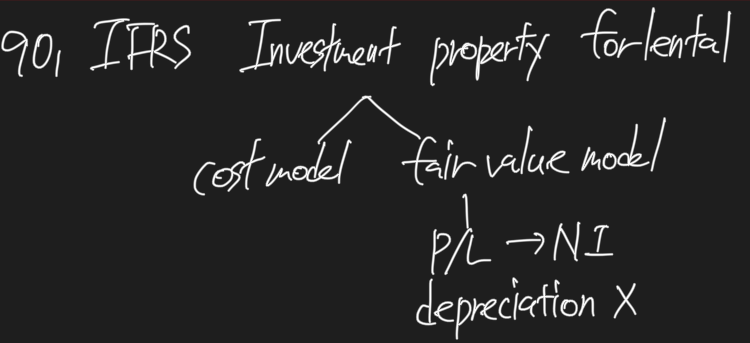 90, IFRS Investment property for lental
cost model fair value model
P/L → NI
depreciation X